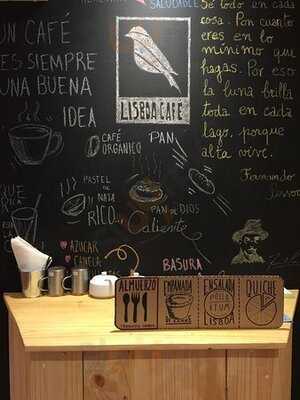 SALUDABLE
UN CAFÉ
ES SIEMPRE
UNA BUENA
IDEA
LISBOA CAFÉ
Sé todo en cada
cosa. Pon cuanto
eres en lo
mínimo que
hagas. Por eso
la luna brilla
toda en cada
lago, porque
alta vive.
Fernando
CAFÉ
ORGÁNICO
PAN
PASTEL
DE
NATA
RICO
PAN DE DIOS
Caliente
QUE
RICO
AZUCAR
CANELA
BASURA
ALMUERZO
EMPANADA
ENSALADA
LISBOA
QUICHE